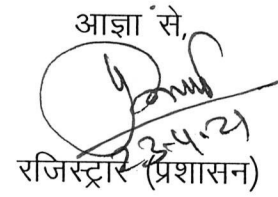 आज्ञा से,
23-4-21
रजिस्ट्रार (प्रशासन)